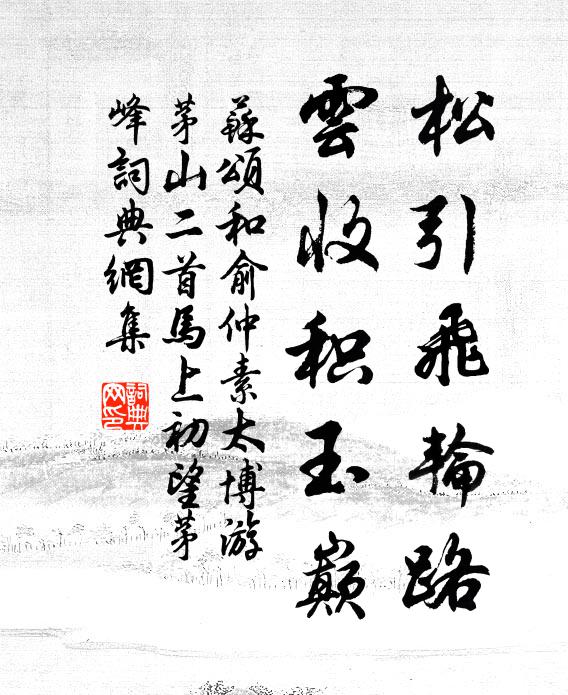 松引飛輪路
雲收积玉巔
蘇頌和俞仲素太博游
茅山二首馬上初望茅
峰詞典網集
詞典
网印